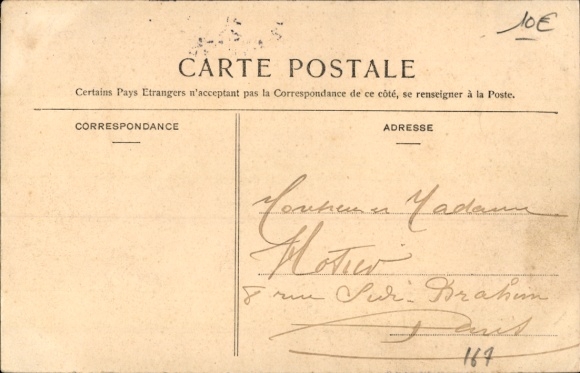 10€
CARTE POSTALE
Certains Pays Etrangers n'acceptant pas la Correspondance de ce côté, se renseigner à la Poste.
CORRESPONDANCE
ADRESSE
Monsieur et Madame
8 rue Sidi-Brahim
Paris
167